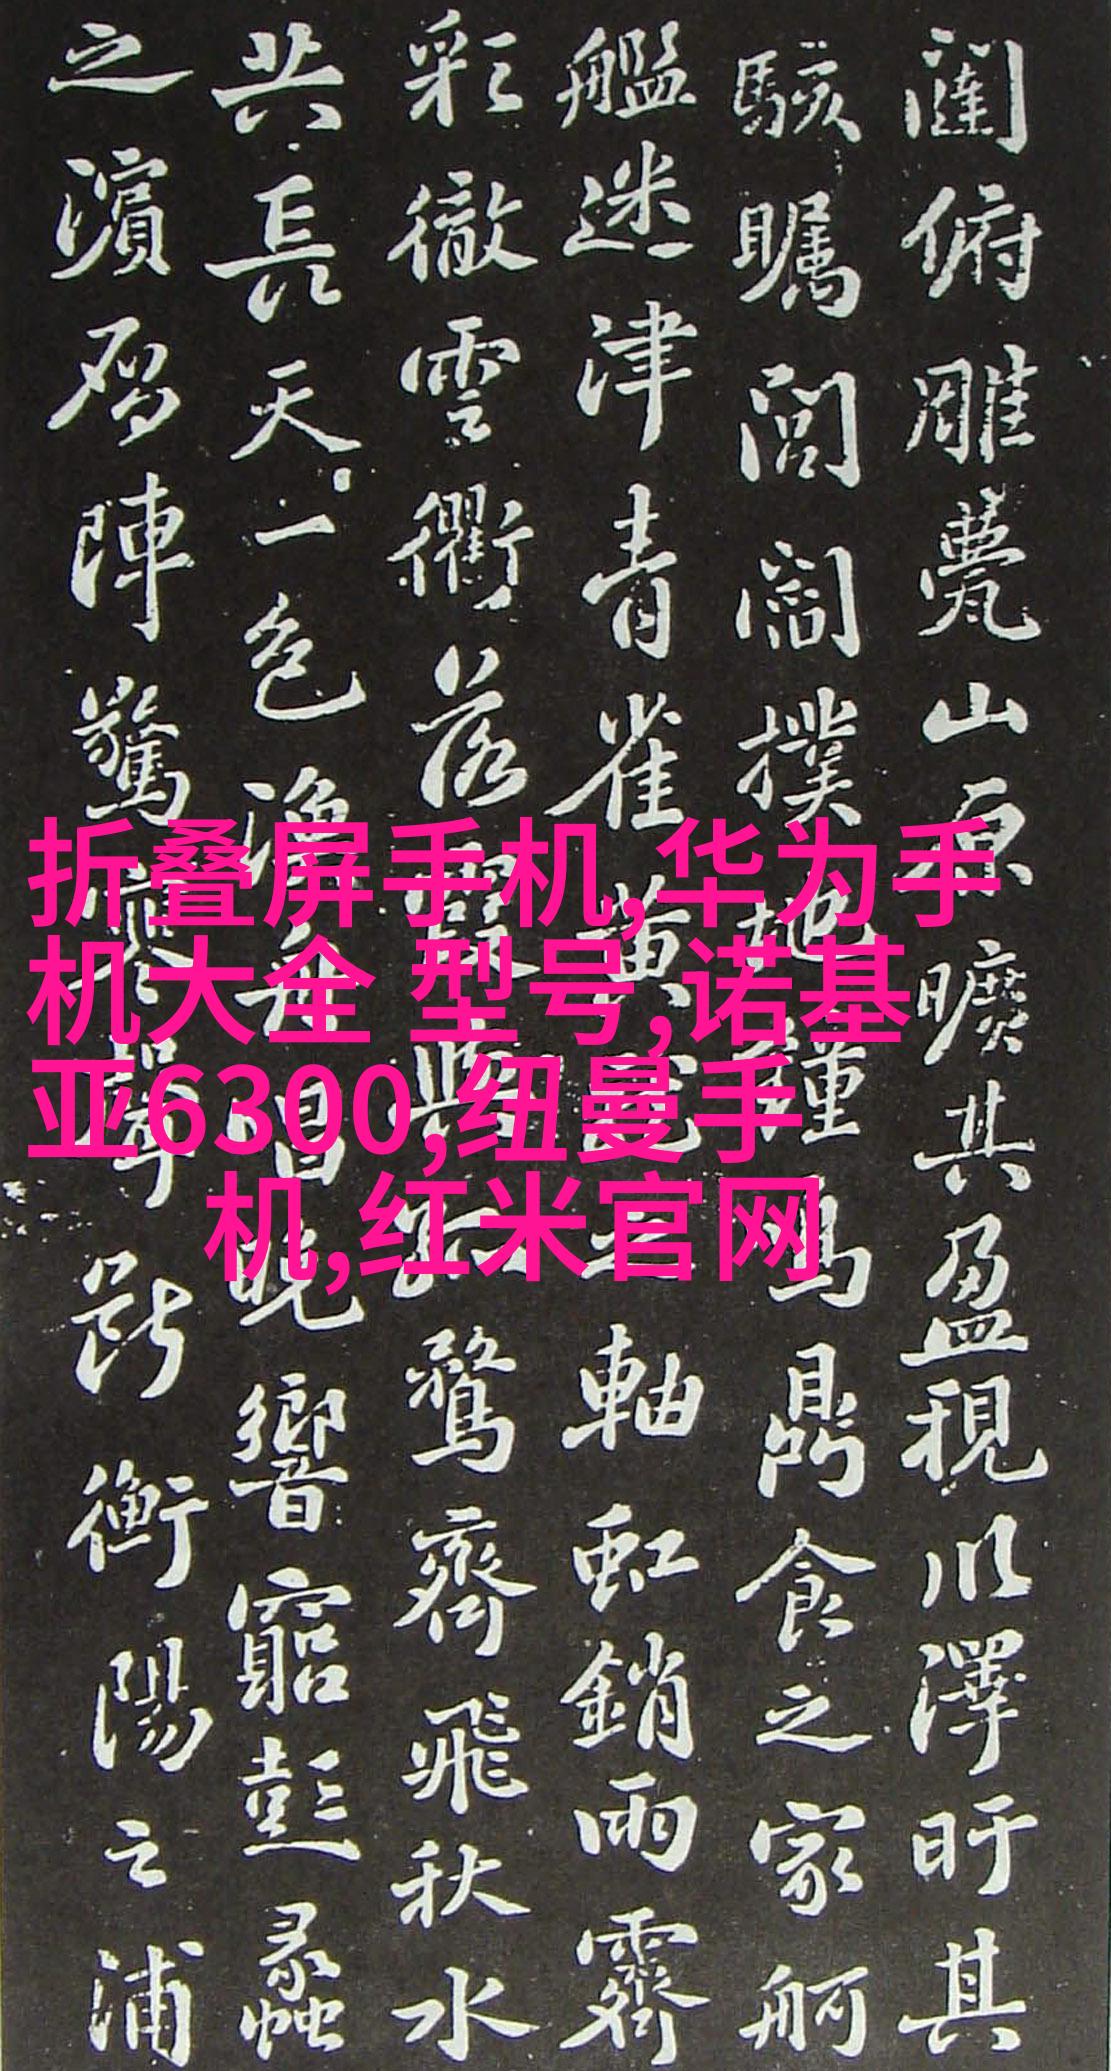 闥俯雕甍山原曠其盈視川澤盱其
駭矚閭閻撲地鍾鳴鼎食之家舸
艦迷津青雀黃龍之軸虹銷雨霽
彩徹雲衢落霞與孤鶩齊飛秋水
共長天一色漁舟唱晚響窮彭蠡
之濱鴈陣驚寒聲斷衡陽之浦
折叠屏手机,华为手
机大全 型号,诺基
亚6300,纽曼手
机,红米官网